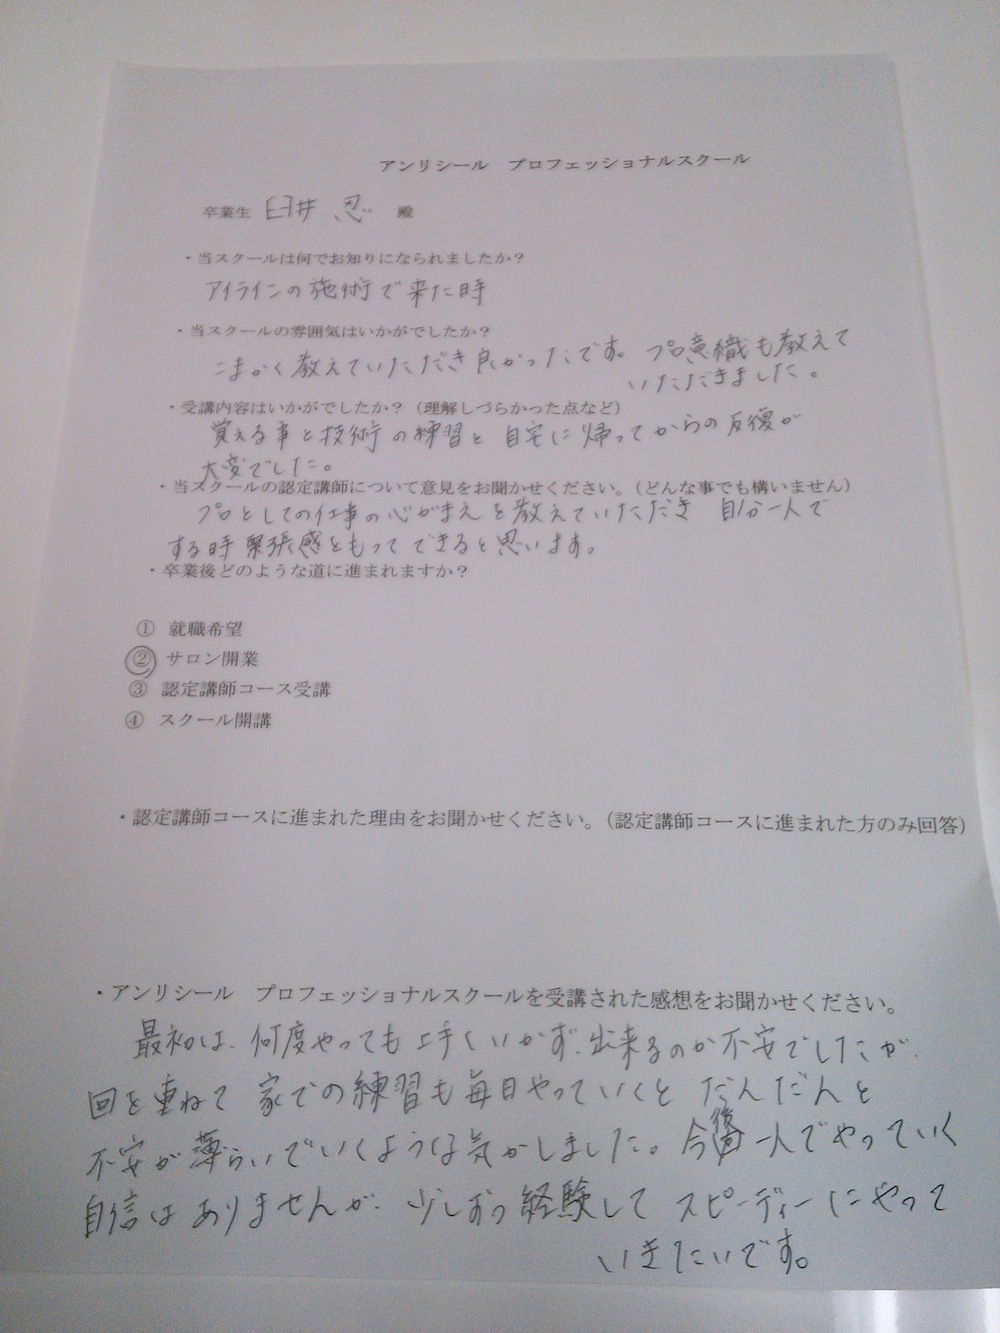 アンリシール　プロフェッショナルスクール
卒業生 臼井 忍 殿
・当スクールは何でお知りになられましたか？
アイラインの施術で来た時
・当スクールの雰囲気はいかがでしたか？
こまかく教えていただき良かったです。プロ意織も教えて
いただきました。
・受講内容はいかがでしたか？（理解しづらかった点など）
覚える事と技術の練習と自宅に帰ってからの反復が
大変でした。
・当スクールの認定講師について意見をお聞かせください。（どんな事でも構いません）
プロとしての仕事の心がまえを教えていただき 自分一人で
する時緊張感をもってできると思います。
・卒業後どのような道に進まれますか？
① 就職希望
② サロン開業
③ 認定講師コース受講
④ スクール開講
・認定講師コースに進まれた理由をお聞かせください。（認定講師コースに進まれた方のみ回答）
・アンリシール　プロフェッショナルスクールを受講された感想をお聞かせください。
最初は、何度やっても上手くいかず、出来るのか不安でしたが、
回を重ねて 家での練習も毎日やっていくと だんだんと
不安が薄らいでいくような気がしました。今後一人でやっていく
自信はありませんが、少しずつ経験して スピーディーにやって
いきたいです。